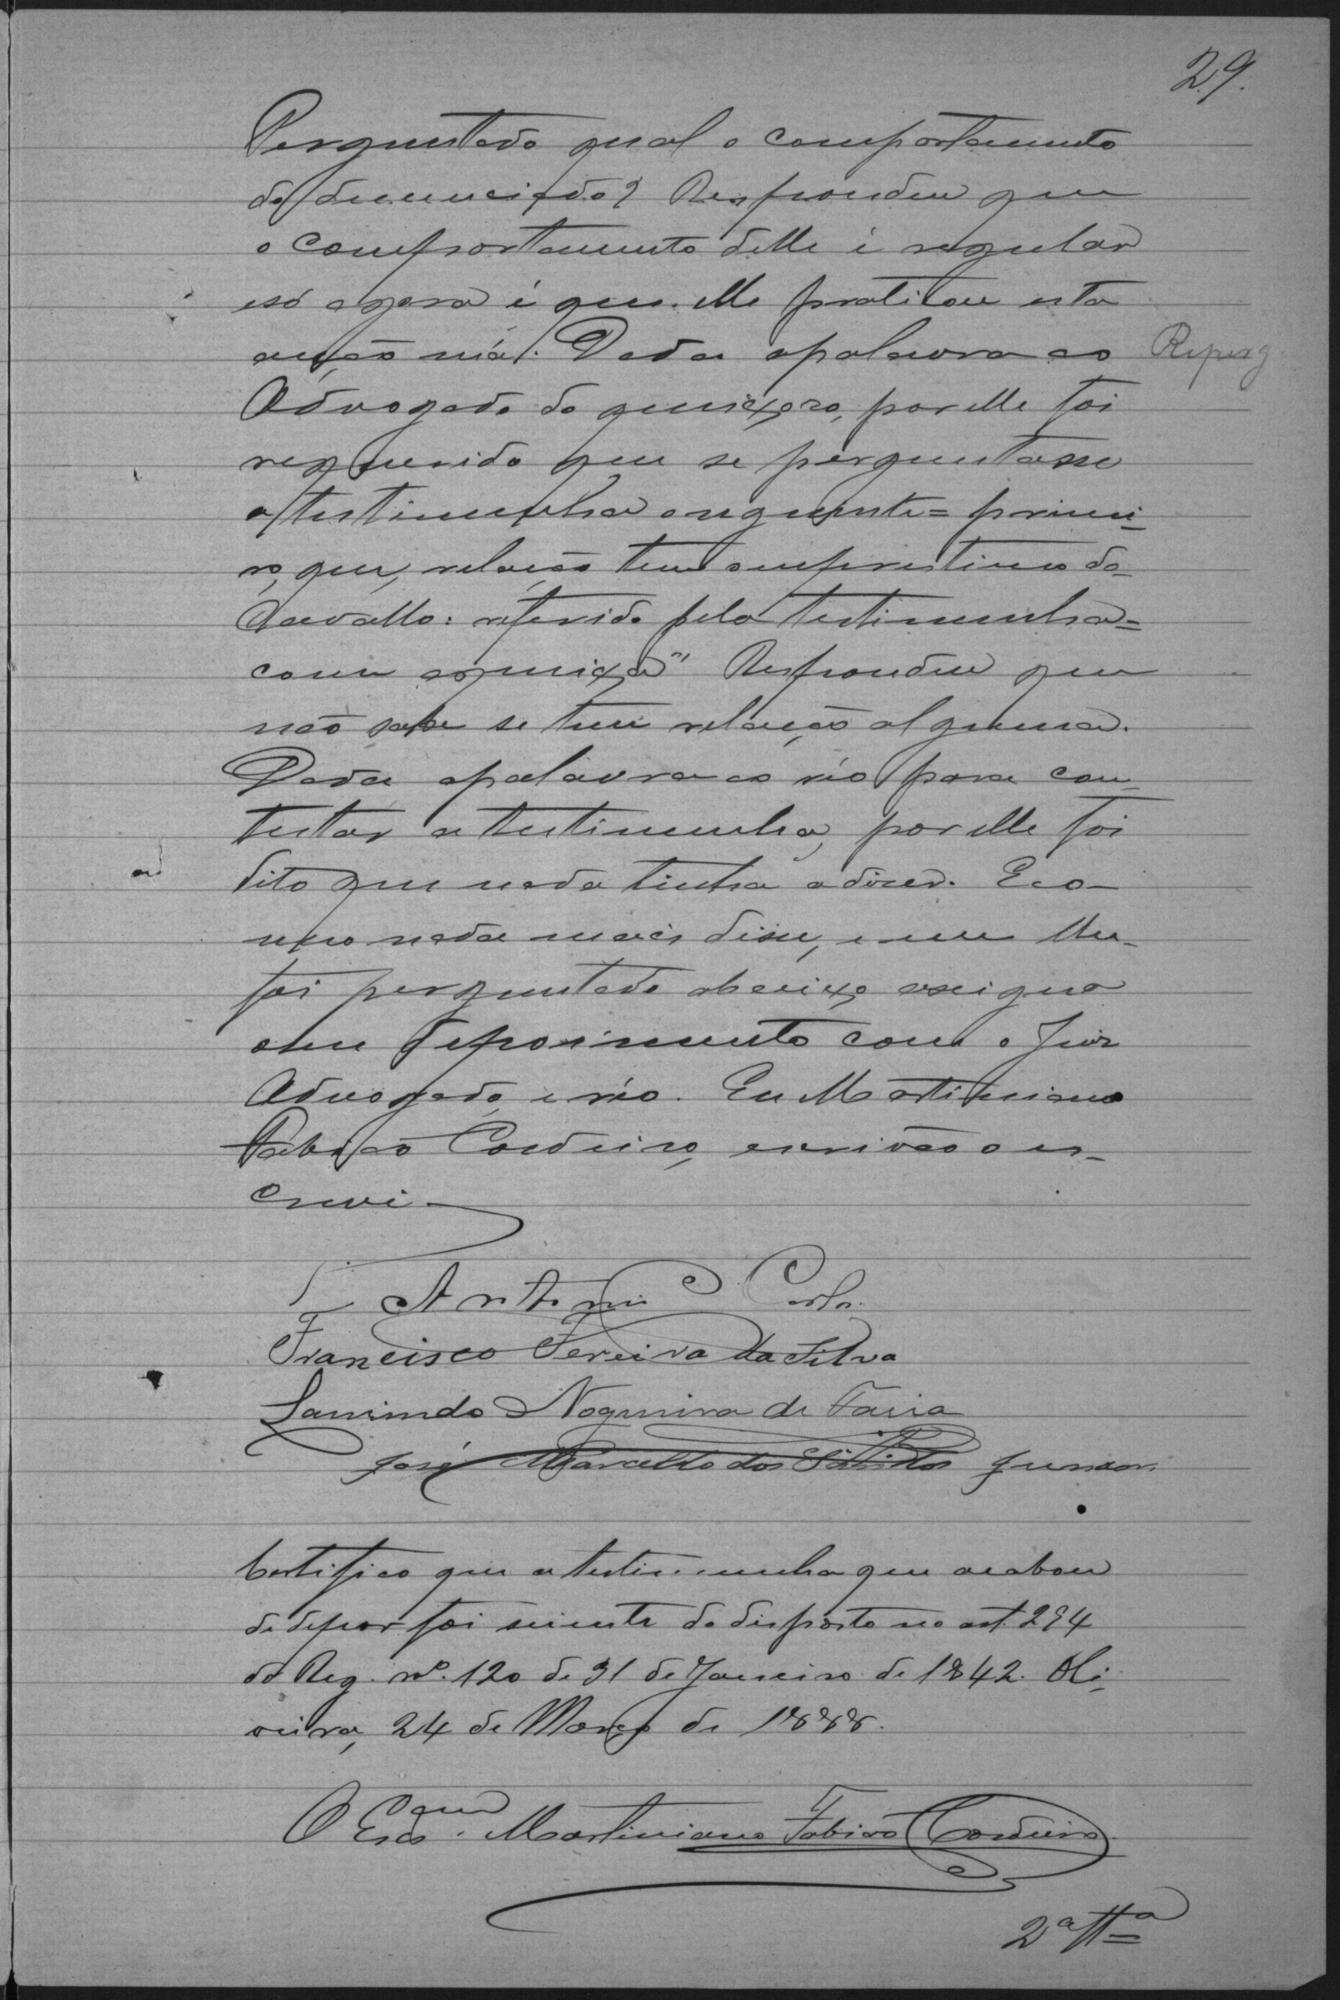 29.
Perguntado qual o comportamento
do denunciado? Respondeu que
o comportamento delle é regular
e só agora é que elle praticou esta
acção má. Dada a palavra ao
Reperg
Advogado do queixoso, por elle foi
requerido que se perguntasse
a testimunha o seguinte = primei-
ro, que relação tem o emprestimo do
Cavallo: referido pela testimunha =
com a queixa" Respondeu que
não sabe se tem relação alguma.
Dada a palavra ao réo para con-
testar a testimunha, por elle foi
dito que nada tinha a dizer. E co-
mo nada mais disse, e nem lhe
foi perguntado abaixo assigna
o seu depoimento com o Juiz
Advogado, e réo. Eu Martiniano
Fabião Cordeiro, escrivão o es-
crevi
Antonio Carlos
Francisco Fereira da Silva
Laurindo Nogueira de Faria
José Marcello dos Santos Junior
Certifico que a testimunha que acabou
de depor foi sciente do disposto no art. 294
do Reg. nº. 120 de 31 de Janeiro de 1842. Oli-
veira, 24 de Março de 1888.
O Escam. Martiniano Fabião Cordeiro
2ª Ttª